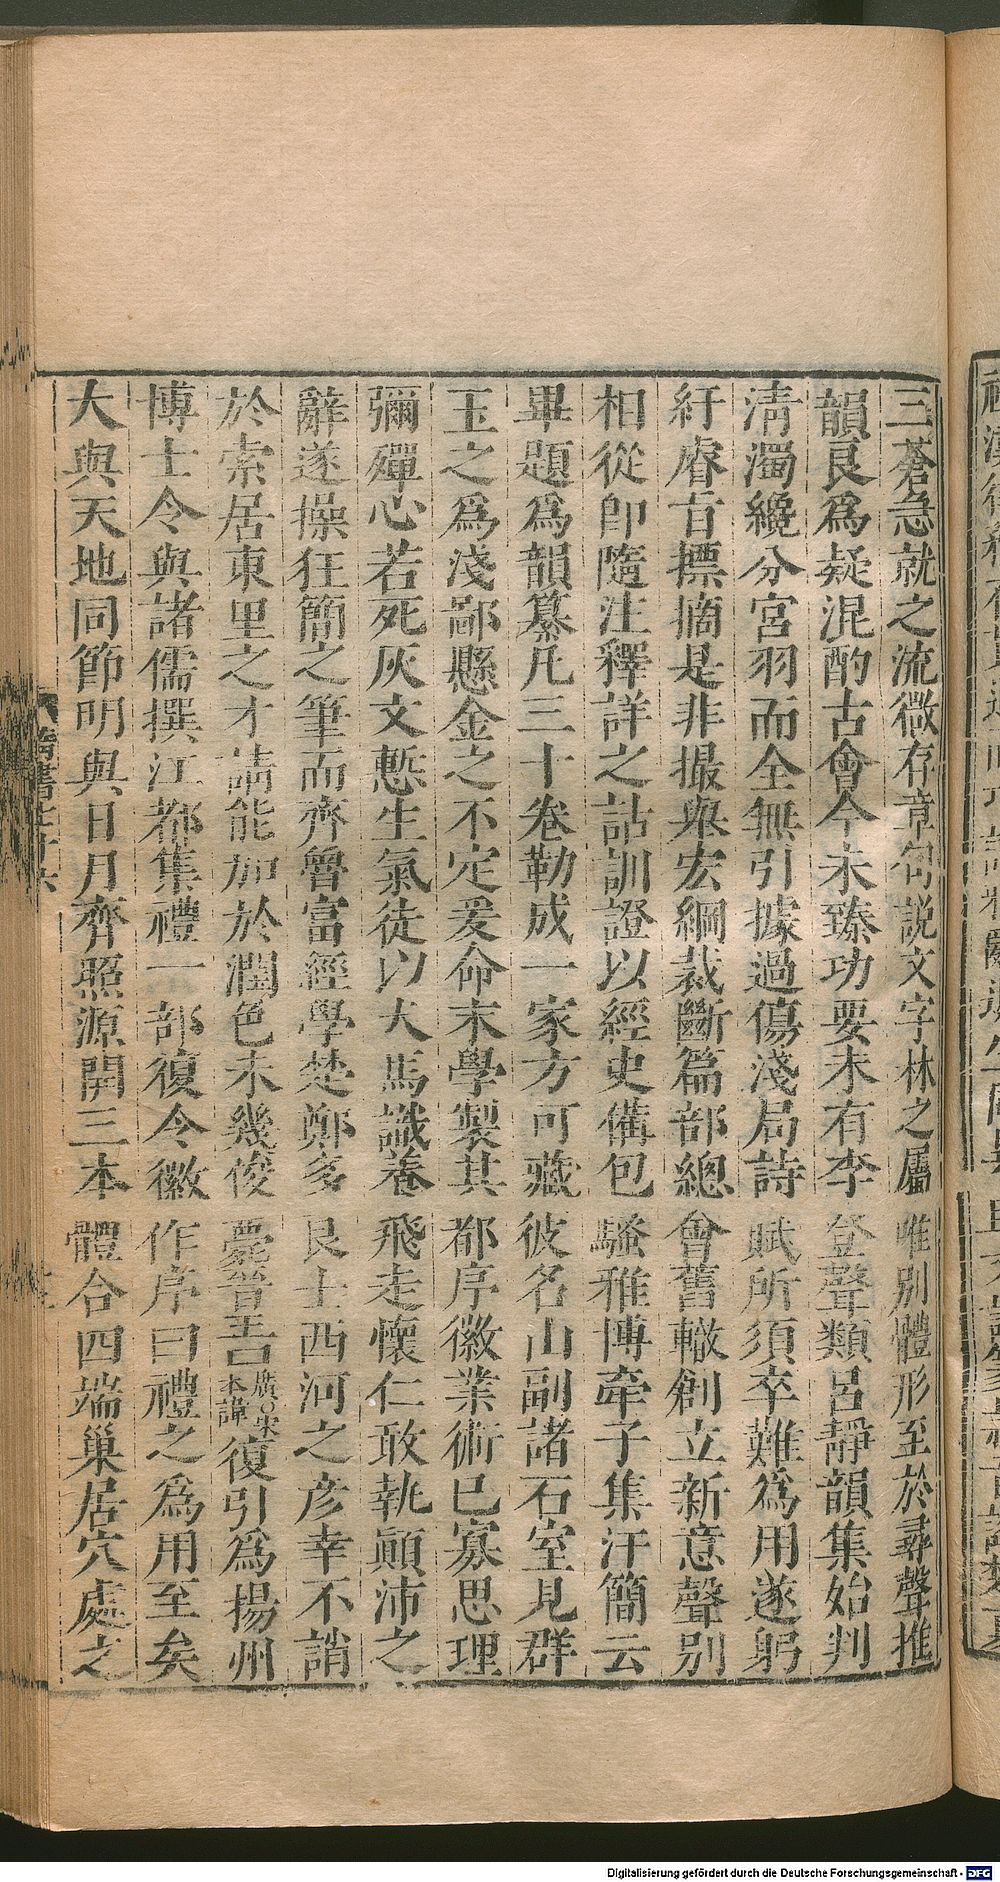 三蒼急就之流微存章句説文字林之屬唯別體形至於尋聲推
韻良爲疑混酌古會今未臻功要未有李登聲類呂靜韻集始判
清濁纔分宮羽而全無引據過傷淺局詩賦所須卒難爲用遂躬
紆睿旨摽摘是非撮舉宏綱裁斷篇部總會舊轍創立新意聲別
相從即隨注釋詳之詁訓證以經史備包騷雅博牽子集汗簡云
畢題爲韻纂凡三十卷勒成一家方可藏彼名山副諸石室見群
玉之爲淺鄙懸金之不定爰命末學製其都序徽業術已寡思理
彌殫心若死灰文慙生氣徒以犬馬識養飛走懷仁敢執顚沛之
辭遂操狂簡之筆而齊魯富經學楚鄭多良士西河之彦幸不誚
於索居東里之才請能加於潤色未幾俊薨晉王廣○宋本諱復引爲揚州
博士令與諸儒撰江都集禮一部復令徽作序曰禮之爲用至矣
大與天地同節明與日月齊照源開三本體合四端巢居穴處之
隋書七十六
Digitalisierung gefördert durch die Deutsche Forschungsgemeinschaft - DFG